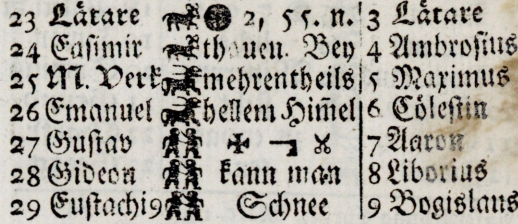 23 Lätare 2, 55. n. 3 Lätare
24 Casimir thauen. Bey 4 Ambrosius
25 M. Verk. mehrentheils 5 Maximus
26 Emanuel hellem Him̄el 6 Cölestin
27 Gustav ✠ ¬ ✂ 7 Aaron
28 Gideon kann man 8 Liborius
29 Eustachi9 Schnee 9 Bogislaus